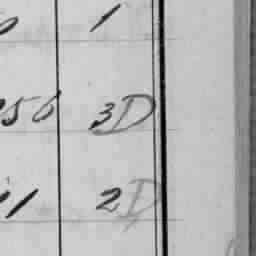 1
56 3D
1 2D